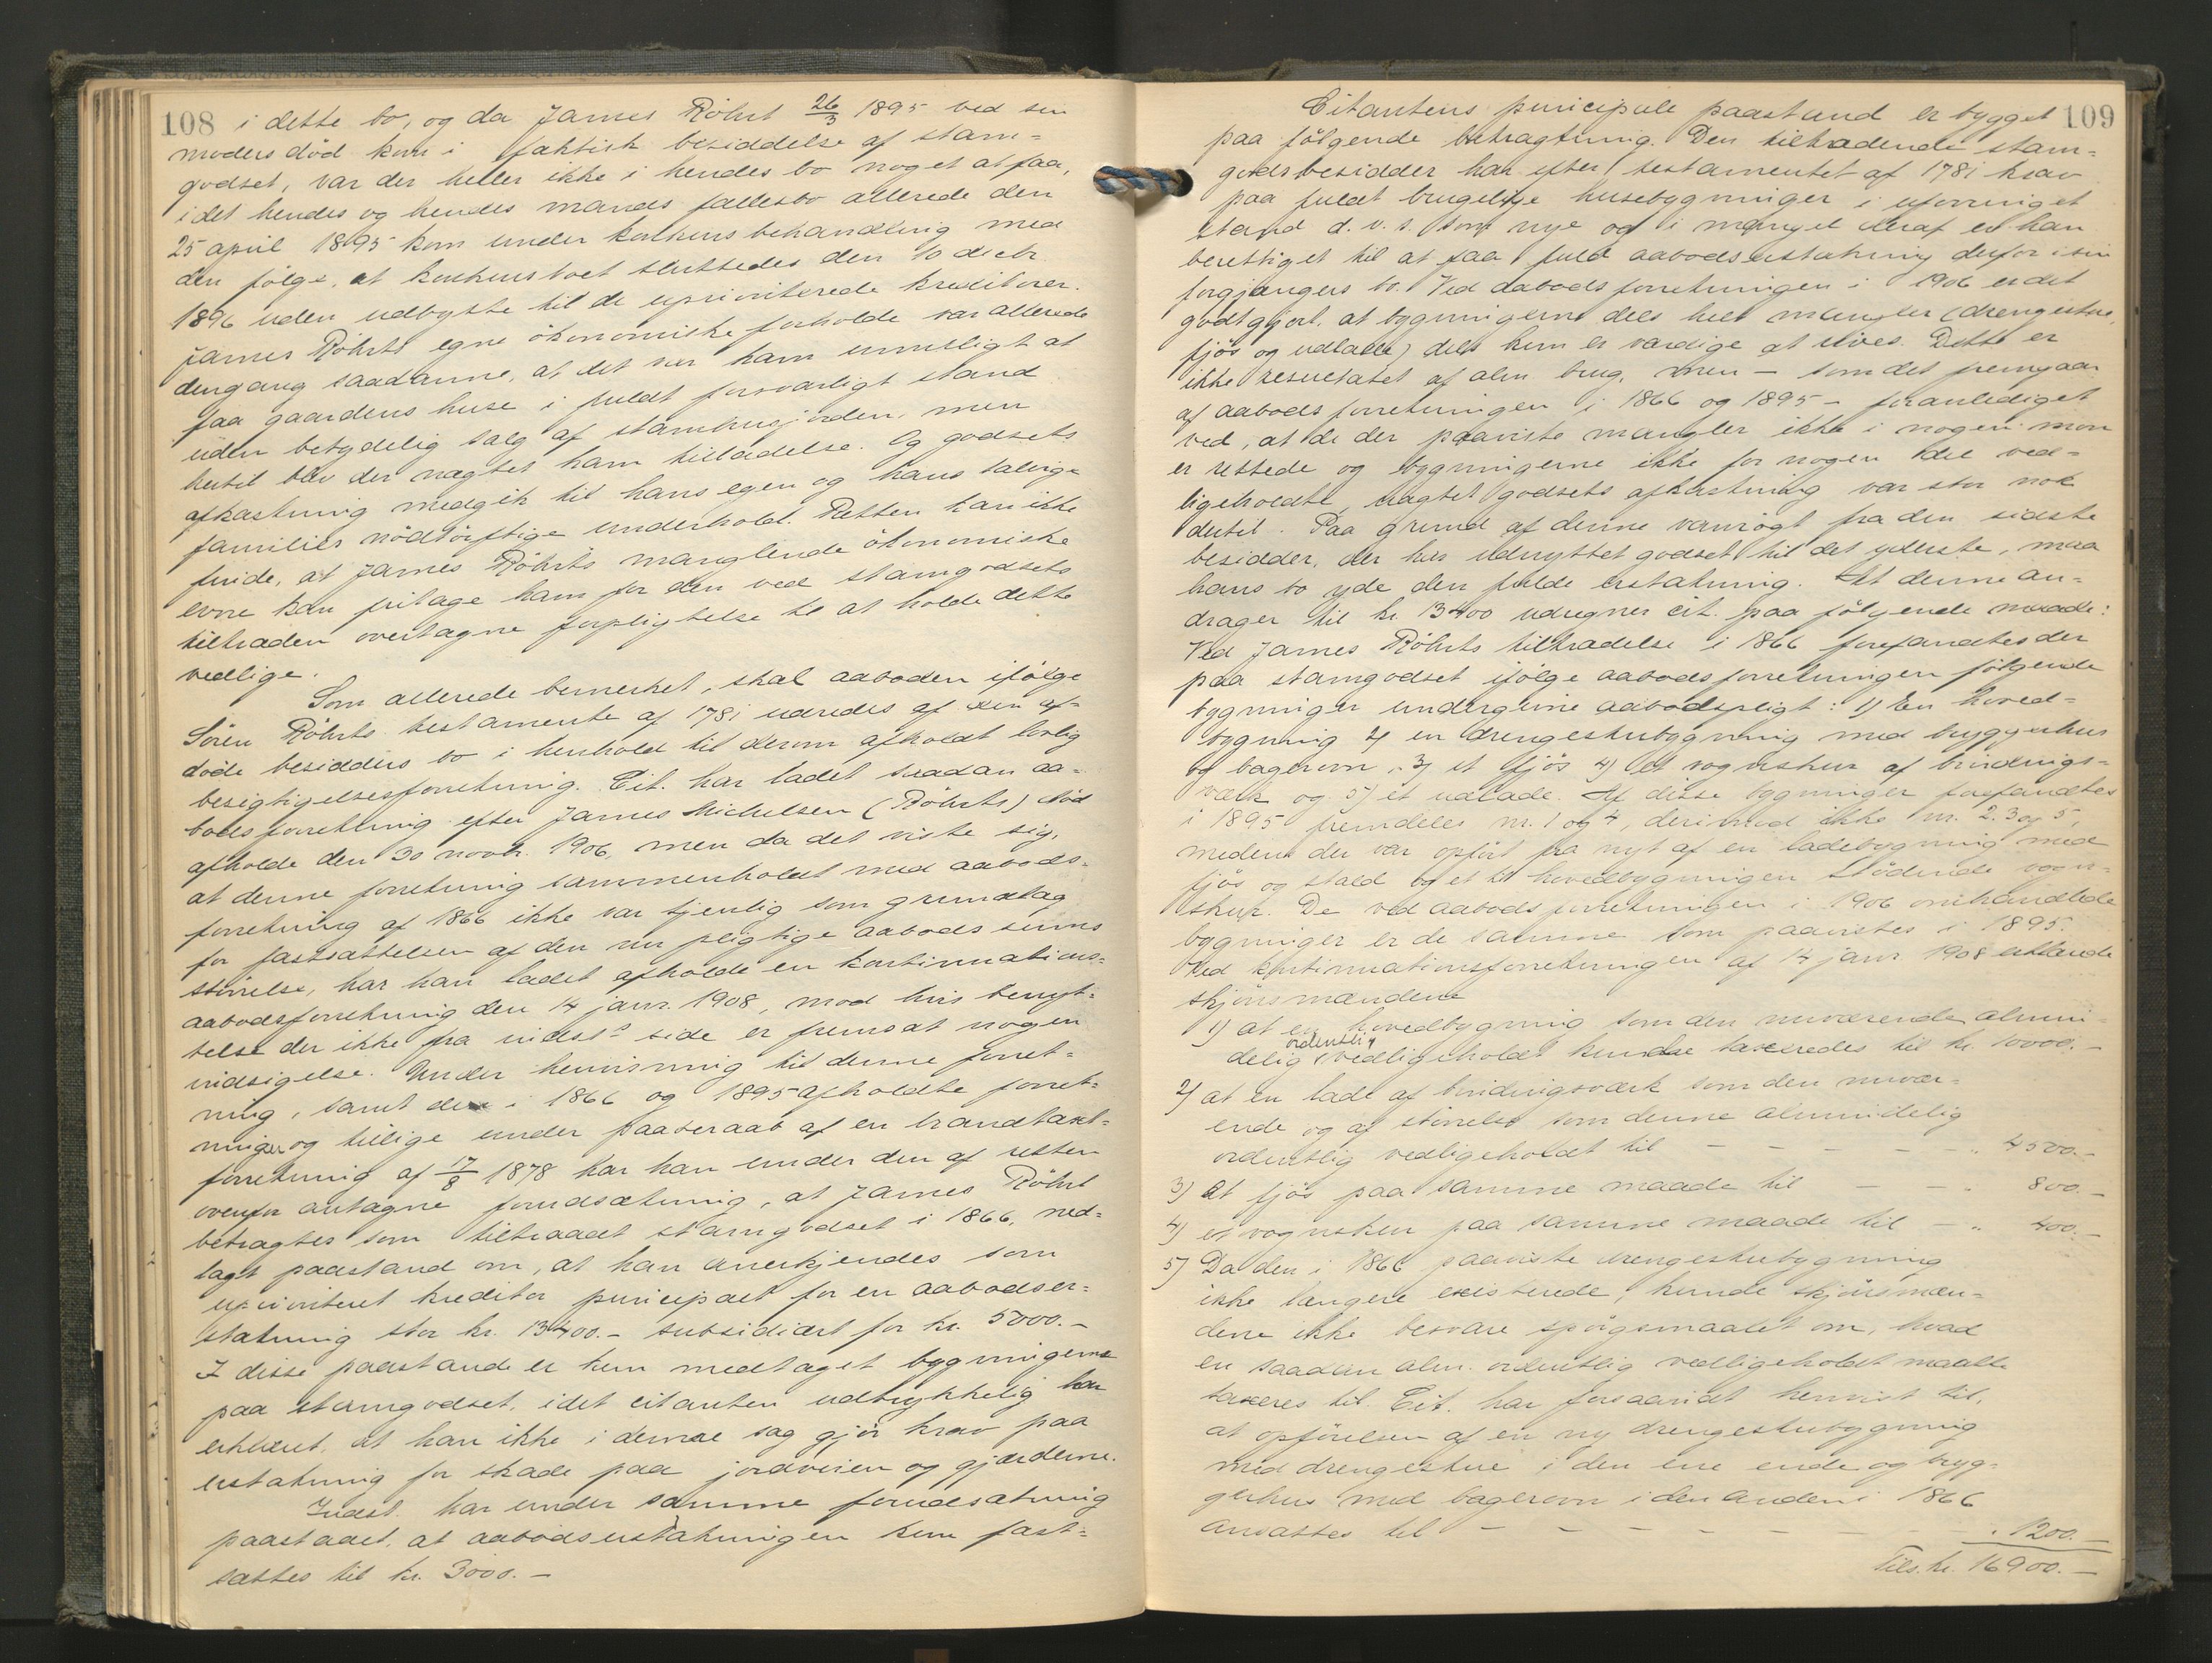 108 i dette bo, og da James Röhrt 26/3 1895 ved sin
moders död kom i faktisk besiddelse af stam=
godset, var der heller ikke i hendes bo noget at faa,
idet hendes og hendes mands fællesbo allerede den
25 april 1895 kom under konkursbehandling med
den fölge, at konkursboet sluttedes den 10 decbr
1896 uden udbytte til de uprioriterede kreditorer.
James Röhrts egne ökonomiske forholde var allerede
dengang saadanne, at det var ham umuligt at
faa gaardens huse i fuldt forsvarligt stand
uden betydelig salg af stamhusjorden, men
hertil blev der nægtet ham tilladelse. Og godsets
afkastning medgik til hans egen og hans talrige
families nödtörftige underhold. Retten kan ikke
finde, at James Röhrts manglende ökonomiske
evne kan fritage ham for den ved stamgodsets
tiltræden overtagne forpligtelse til at holde dette
vedlige.
Som allerede bemerket, skal aaboden ifölge
Sören Röhrts testamente af 1781 udredes af den af=
döde besidders bo i henhold til derom afholdt lovlig
besigtigelsesforretning. Cit. har ladet saadan aa=
bodsforretning efter James Michelsen (Röhrts) död
afholde den 30 novbr. 1906, men da det viste sig,
at denne forretning sammenholdt med aabods=
forretning af 1866 ikke var tjenlig som grundlag
for fastsættelsen af den nu pligtige aabods sums
störrelse, har han ladet afholde en kontinuations=
aabodsforretning den 14 janr. 1908, mod hvis benyt=
telse der ikke fra indst.s side er fremsat nogen
indsigelse. Under henvisning til denne forret=
ning, samt de i 1866 og 1895 afholdte forret=
ninger og tillige under paaberaab af en brandtaxt=
forretning af 17/8 1878 har han under den af retten
ovenfor antagne forudsætning, at James Röhrt
betragtes som tiltraadt stamgodset i 1866, ned=
lagt paastand om, at han anerkjendes som
uprioriteret kreditor principalt for en aabodser=
statning stor kr. 13400.- subsidiært for kr. 5000.-
I disse paastande er kun medtaget bygningerne
paa stamgodset, idet citanten udtrykkelig har
erklæret, at han ikke i denne sag gjör krav paa
erstatning for skade paa jordveien og gjærderne.
Indst. har under samme forudsætning
paastaaet, at aabodserstatningen kun fast=
sættes til kr. 3000.-
Citantens principale paastand er bygget 109
paa fölgende betragtning. Den tiltrædende stam=
godsbesidder har efter testamentet af 1781 krav
paa fuldt brugelige husebygninger i uforringet
stand d. v. s. som nye og i mangel deraf er han
berettiget til at faa fuld aabodserstatning derfor i sin
forgjængers bo. Ved aabodsforretningen i 1906 er det
godtgjort, at bygningerne dels helt mangler (drengestue,
fjös og udlade) dels kun er værdige at rives. Dette er
ikke resultatet af alm brug, men - som det fremgaar
af aabodsforretningen i 1866 og 1895 - foranlediget
ved, at de der paaviste mangler ikke i nogen mon
er rettede og bygningerne ikke for nogen del ved=
ligeholdte, uagtet godsets afkastning var stor nok
dertil. Paa grund af denne vanrögt fra den sidste
besidder, der har udnyttet godset til det yderste, maa
hans bo yde den fulde erstatning. At denne an=
drager til kr. 13400 udregner cit. paa fölgende maade:
Ved James Röhrts tiltrædelse i 1866 forefandtes der
paa stamgodset ifölge aabodsforretningen fölgende
bygninger undergivne aabodspligt: 1) En hoved=
bygning 2) en drengestubygning med bryggerhus
og bagerovn, 3) et fjös 4) et vognskur af bindings=
værk og 5) et udlade. Af disse bygninger forefandtes
i 1895 fremdeles nr. 1 og 4, derimod ikke nr. 2. 3 og 5,
medens der var opfört fra nyt af en ladebygning med
fjös og stald og et til hovedbygningen stödende vogn=
skur. De ved aabodsforretningen i 1906 omhandlede
bygninger er de samme som paavistes i 1895.
Ved kontinuationsforretningen af 14 janr 1908 uttalede
skjönsmændene
1) at en hovedbygning som den nuværende almin=
delig ordentlig vedligeholdt kunde taxeredes til kr. 10000.-
2) at en lade af bindingsværk som den nuvær=
ende og af störrelse som denne almindelig
ordentlig vedligeholdt til - - - - - " 4500.-
3) Et fjös paa samme maade til - - " 800.-
4) et vognskur paa samme maade til - " 400.-
5) Da den i 1866 paaviste drengestubygning
ikke længere existerede, kunde skjönsmæn=
dene ikke besvare spörgsmaalet om, hvad
en saadan alm. ordentlig vedligeholdt maatte
taxeres til. Cit. har forsaavidt henvist til,
at opförelsen af en ny drengestubygning
med drengestue i den ene ende og bryg=
gerhus med bagerovn i den anden i 1866
ansattes til - - - - - - - " 1200.-
Tils. kr. 16900.-